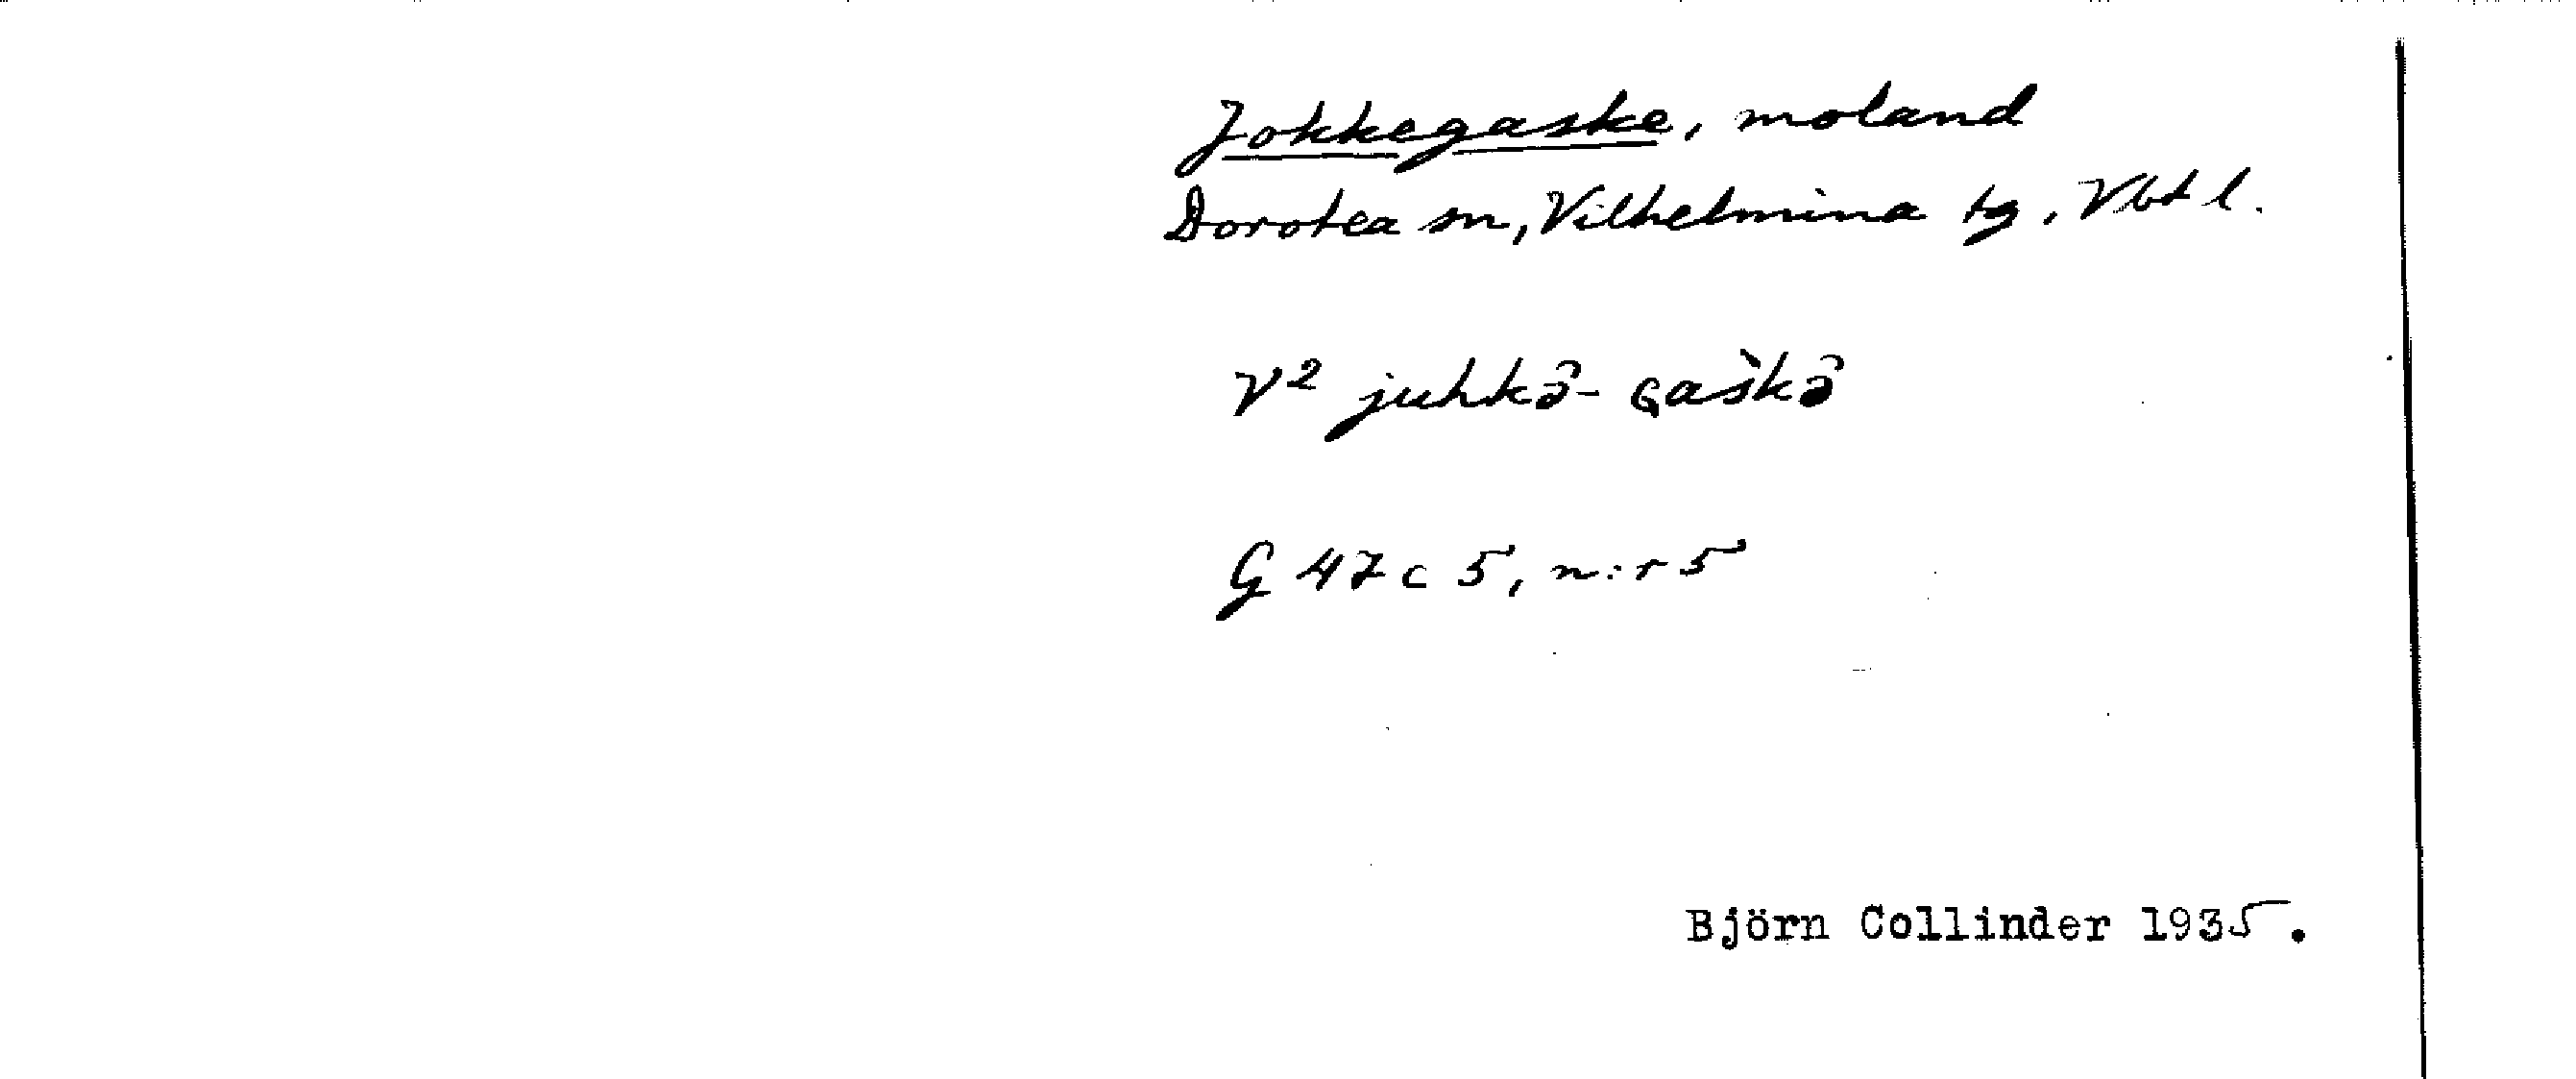 Jokkegaske, moland
Dorotea sn, Vilhelmina tg, Vbtl.
V² juhkə̂- Gaškə̂
G 47 c 5, n:r 5
Björn Collinder 1935.